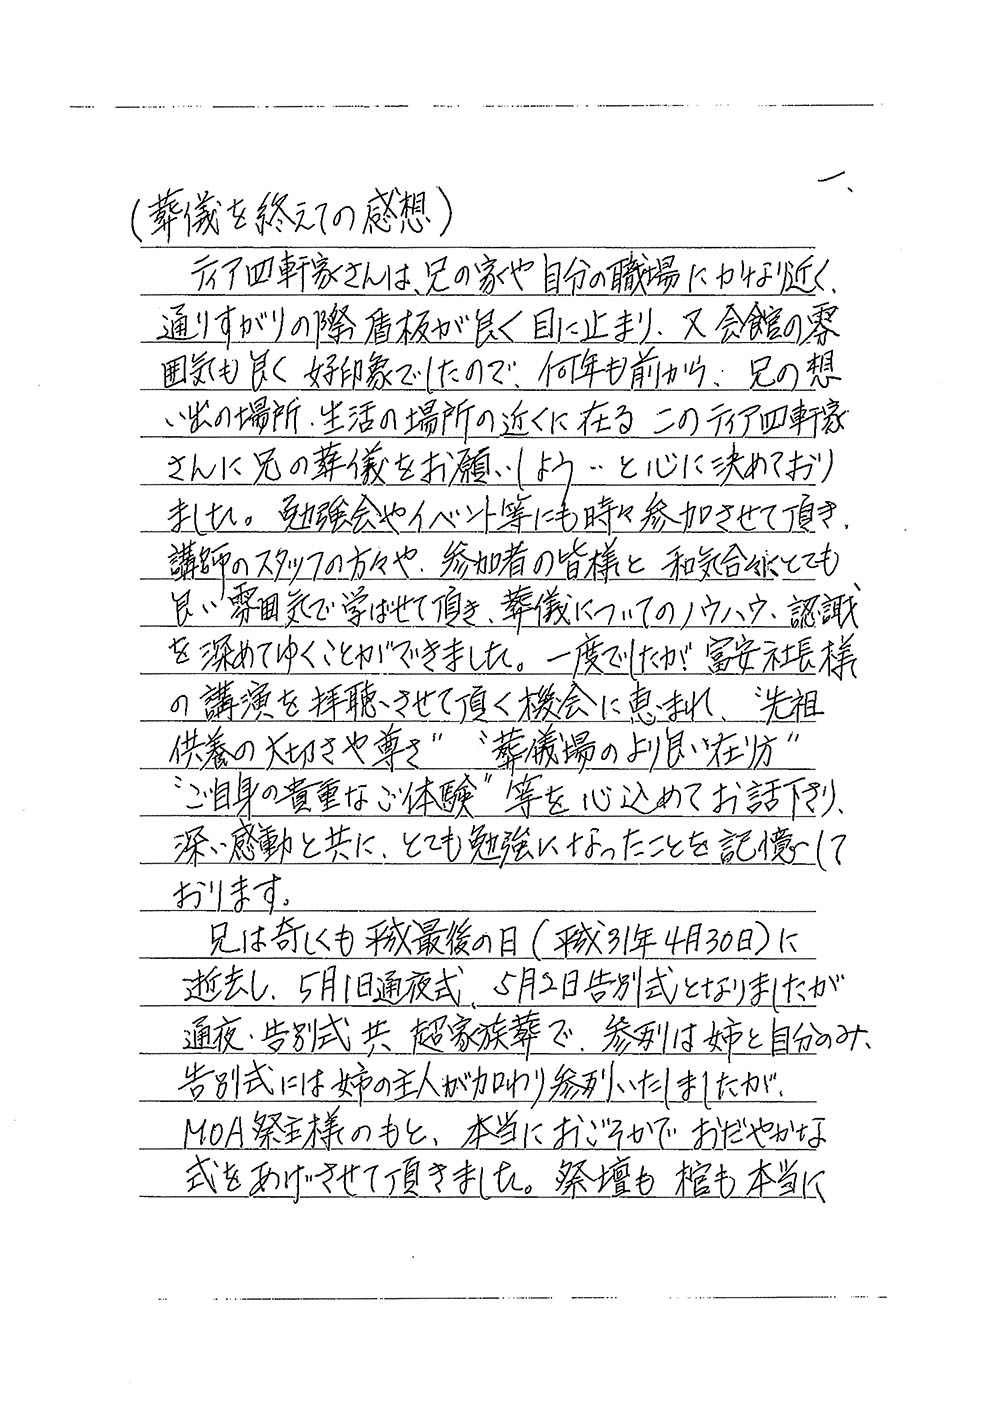 一、
(葬儀を終えての感想)
ティア四軒家さんは、兄の家や自分の職場にかなり近く、
通りすがりの際看板が良く目に止まり、又会館の雰
囲気も良く好印象でしたので、何年も前から、兄の想
い出の場所、生活の場所の近くに在るこのティア四軒家
さんに兄の葬儀をお願いしよう‥と心に決めており
ました。勉強会やイベント等にも時々参加させて頂き、
講師のスタッフの方々や、参加者の皆様と和気合々にとても
良い雰囲気で学ばせて頂き、葬儀についてのノウハウ、認識
を深めてゆくことができました。一度でしたが冨安社長様
の講演を拝聴させて頂く機会に恵まれ、“先祖
供養の大切さや尊さ”“葬儀場のより良い在り方”
“ご自身の貴重なご体験”等を心込めてお話下さり、
深い感動と共に、とても勉強になったことを記憶して
おります。
兄は奇しくも平成最後の日(平成31年4月30日)に
逝去し、5月1日通夜式、5月2日告別式となりましたが
通夜・告別式共超家族葬で、参列は姉と自分のみ、
告別式には姉の主人が加わり参列いたしましたが、
MOA祭主様のもと、本当におごそかでおだやかな
式をあげさせて頂きました。祭壇も棺も本当に